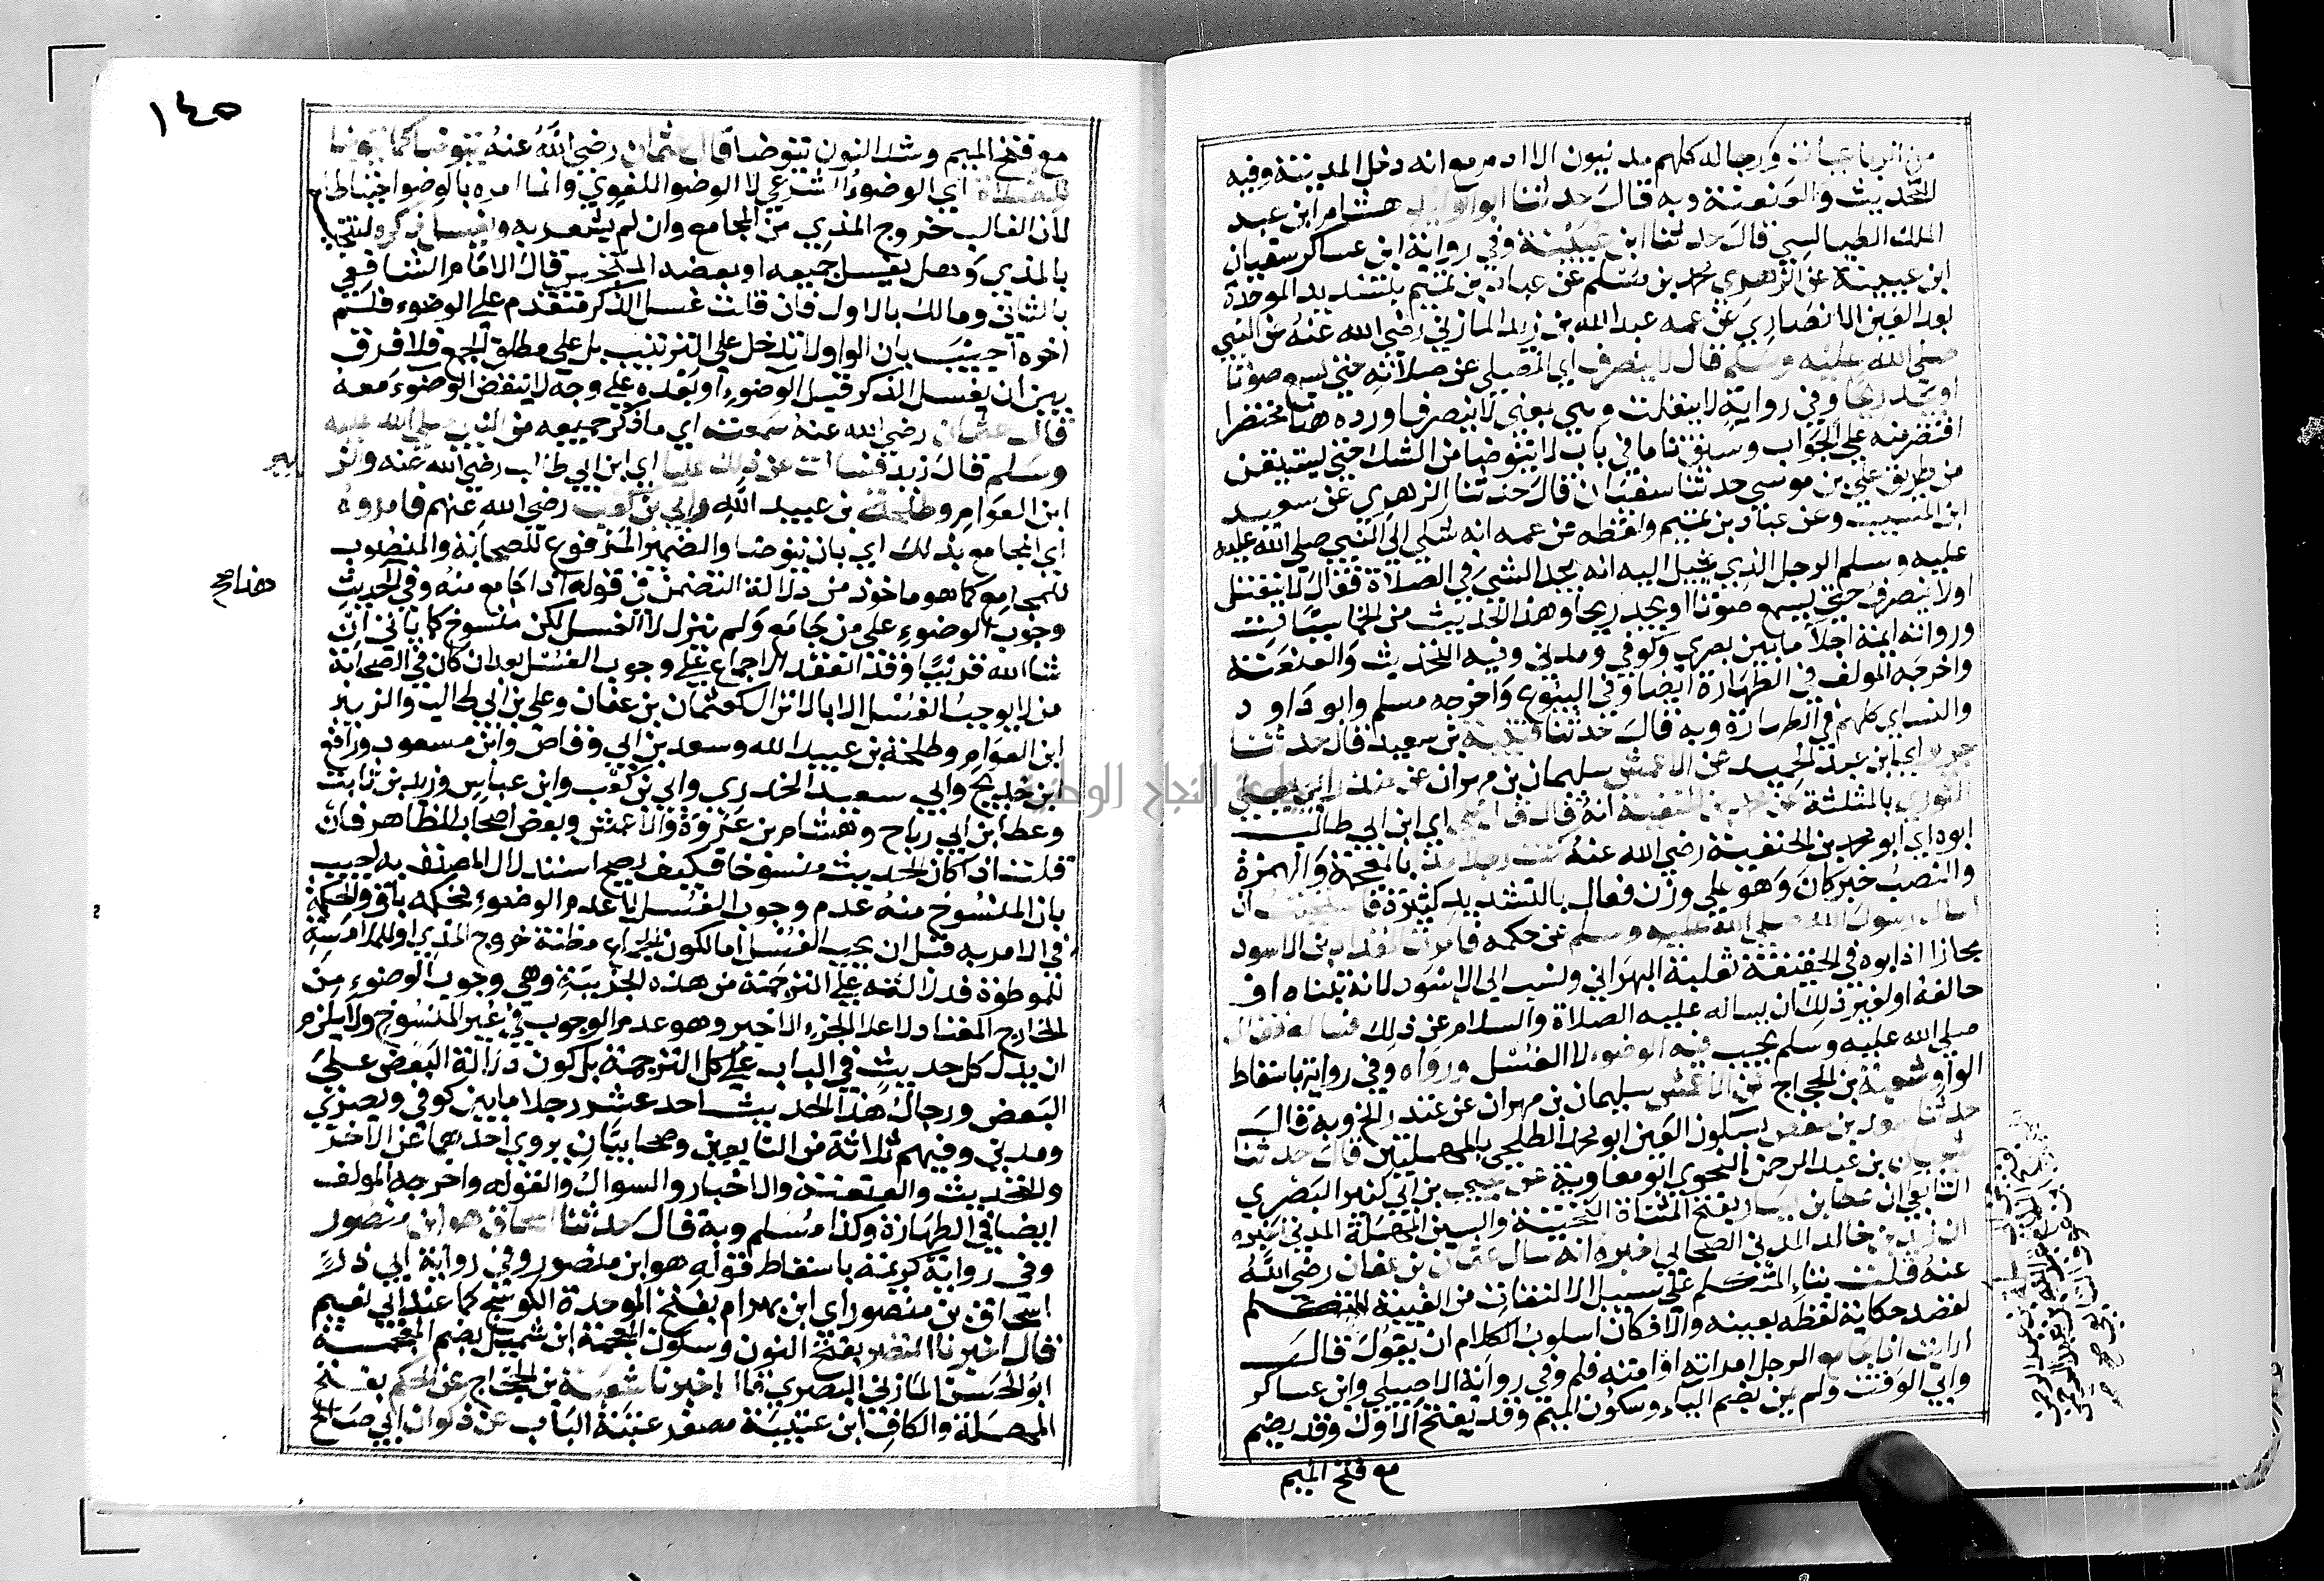 من الرباعيات ورجاله كلهم مدنيون الا ادم مع انه دخل المدينة وفيه
التحديث والعنعنة وبه قال حدثنا ابو الوليد هشام ابن عبد
الملك الطيالسي قال حدثنا ابن عيينة وفي رواية ابن عساكر سفيان
ابن عيينة عن الزهري محمد بن مسلم عن عباد بن تميم بتشديد الموحدة
بعد العين الانصاري عن عمه عبد الله بن زيد المازني رضي الله عنه عن النبي
صلى الله عليه وسلم قال لا ينصرف اي المصلي عن صلاته حتى يسمع صوتا
او يجد ريحا وفي رواية لا ينفلت وهي بمعنى لا ينصرف اورده هنا مختصرا
اقتصر منه على الجواب وسبق تاما في باب لا يتوضا من الشك حتى يستيقن
من طريق علي بن موسى حدثنا سفيان قال حدثنا الزهري عن سعيد
ابن المسيب وعن عباد بن تميم ولفظه عن عمه انه شكى الى النبي صلى الله عليه
عليه وسلم الرجل الذي يخيل اليه انه يجد الشي في الصلاة فقال لا ينفتل
او لا ينصرف حتى يسمع صوتا او يجد ريحا وهذا الحديث من الخماسيات
ورواته ايمة اجلا ما بين بصري وكوفي ومدني وفيه التحديث والعنعنة
واخرجه المولف في الطهارة ايضا وفي البيوع واخرجه مسلم وابو داود
والنساي كلهم في الطهارة وبه قال حدثنا قتيبة بن سعيد قال حدثنا
جرير اي ابن عبد الحميد عن الاعمش سليمان بن مهران عن منذر ابي يعلى
الثوري بالمثلثة عن محمد بن الحنفية انه قال قال علي اي ابن ابي طالب
ابوه اي ابو محمد بن الحنفية رضي الله عنه كنت رجلا مذا بالمعجمة والهمزة
والنصب خبر كان وهو على وزن فعال بالتشديد كثرة فاستحييت ان
اسال رسول الله صلى الله عليه وسلم عن حكمه فامرت المقداد بن الاسود
مجازا اذ ابوه في الحقيقة ثعلبة البهراني ونسب الى الاسود لانه تبناه او
حالفه او لغير ذلك ان يساله عليه الصلاة والسلام عن ذلك فساله فقال
صلى الله عليه وسلم يجب فيه الوضوء لا الغسل ورواه وفي رواية باسقاط
الواو شعبة بن الحجاج عن الاعمش سليمان بن مهران عن عندر الخ وبه قال
حدثنا سعد بن حفص بسكون العين ابو محمد الطلحي بالمهملتين قال حدثنا
شيبان بن عبد الرحمن النحوي ابو معاوية عن يحيى بن ابي كثير البصري
التابعي ان عطا بن يسار بفتح المثناة التحتية والسين المهملة المدني اخبره
ان زيد بن خالد المدني الصحابي اخبره انه سال عثمان بن عفان رضي الله
عنه قلت بتاء المتكلم على سبيل الالتفات من الغيبة للتكلم
لقصد حكاية لفظه بعينه والا فكان اسلوب الكلام ان يقول قال
ارايت اذا جامع الرجل امراته او امته فلم وفي رواية الاصيلي وابن عساكر
وابي الوقت ولم يمن بضم الياء وسكون الميم وقد يفتح الاول وقد يضم
مع فتح الميم
١٤٥
مع فتح الميم وشد النون يتوضا قال عثمان رضي الله عنه يتوضا كما يتوضا
للصلاة اي الوضوء الشرعي لا الوضو اللغوي وانما امره بالوضوا حتياطا
لان الغالب خروج المذي من المجامع وان لم يشعر به ويغسل ذكره لتنجسه
بالمذي وهل يغسل جميعه او بعضه المتنجس قال الامام الشافعي
بالثاني ومالك بالاول فان قلت غسل الذكر متقدم على الوضوء فلم
اخره اجيب بان الواو لا تدخل على الترتيب بل على مطلق الجمع فلا فرق
بين ان يغسل الذكر قبل الوضوء او بعده على وجه لا ينتقض الوضوء معه
قال عثمان رضي الله عنه سمعته اي ما ذكر جميعه من النبي صلى الله عليه
وسلم قال زيد فسالت عن ذلك عليا اي ابن ابي طالب رضي الله عنه والز
بير
ابن العوام وطلحة بن عبيد الله وابي بن كعب رضي الله عنهم فامروه
اي المجامع بذلك اي بان يتوضا والضمير المرفوع للصحابة والمنصوب
للمجامع كما هو ماخوذ من دلالة التضمن في قوله اذا جامع منه وفي الحديث
هنا صح
وجوب الوضوء على من جامع ولم ينزل لا الغسل لكن منسوخ كما ياتي ان
شا الله قريبا وقد انعقد الاجماع على وجوب الغسل بعد ان كان في الصحابة
من لا يوجب الغسل الا بالانزال كعثمان بن عفان وعلي بن ابي طالب والزبير
ابن العوام وطلحة بن عبيد الله وسعد بن ابي وقاص وابن مسعود ورافع
ابن خديج وابي سعيد الخدري وابي بن كعب وابن عباس وزيد بن ثابت
وعطا بن ابي رباح وهشام بن عروة والاعمش وبعض اصحاب الظاهر فان
قلت اذا كان الحديث منسوخا فكيف يصح استدلال المصنف به اجيب
بان المنسوخ منه عدم وجوب الغسل لا عدم الوضوء فحكمه باق والحكمة
في الامر به قبل ان يجب الغسل اما لكون الجماع مظنة خروج المذي او لملامسة
للموطوة فدلالته على الترجمة من هذه الجزئية وهي وجوب الوضوء من
الخارج المعتاد لا على الجزء الاخير وهو عدم الوجوب في غير المنسوخ ولا يلزم
ان يدل كل حديث في الباب على كل الترجمة بل كون دلالة البعض على
البعض ورجال هذا الحديث احد عشر رجلا ما بين كوفي وبصري
ومدني وفيهم ثلاثة من التابعين وصحابيان يروي احدهما عن الاخر
والتحديث والعنعنة والاخبار والسوال والقول واخرجه المولف
ايضا في الطهارة وكذا مسلم وبه قال حدثنا اسحاق هو ابن منصور
وفي رواية كريمة باسقاط قوله هو ابن منصور وفي رواية ابي ذر
اسحاق بن منصور اي ابن بهرام بفتح الموحدة الكوسج كما عند ابي نعيم
قال اخبرنا النضر بفتح النون وسكون المعجمة ابن شميل بضم المعجمة
ابو الحسن المازني البصري قال اخبرنا شعبة بن الحجاج عن الحكم بفتح
المهملة والكاف ابن عتيبة مصغر عتبة الباب عن ذكوان ابي صالح